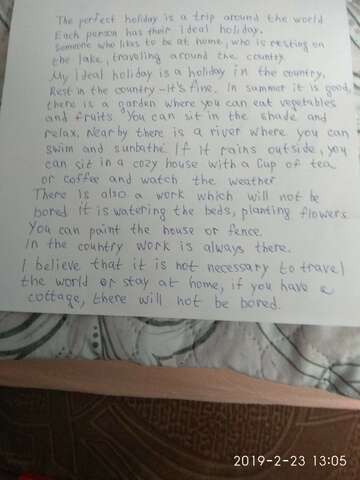 The perfect holiday is a trip around the world
Each person has their ideal holiday.
Someone who likes to be at home, who is resting on
the lake, traveling around the country.
My ideal holiday is a holiday in the country.
Rest in the country - it's fine. In summer it is good,
there is a garden where you can eat vegetables
and fruits. You can sit in the shade and
relax. Near by there is a river where you can
swim and sunbathe. If it rains outside, you
can sit in a cozy house with a cup of tea
or coffee and watch the weather.
There is also a work which will not be
bored It is watering the beds, planting flowers.
You can paint the house or fence.
In the country work is always there.
I believe that it is not necessary to travel
the world or stay at home, if you have a
cottage, there will not be bored.
2019-2-23 13:05